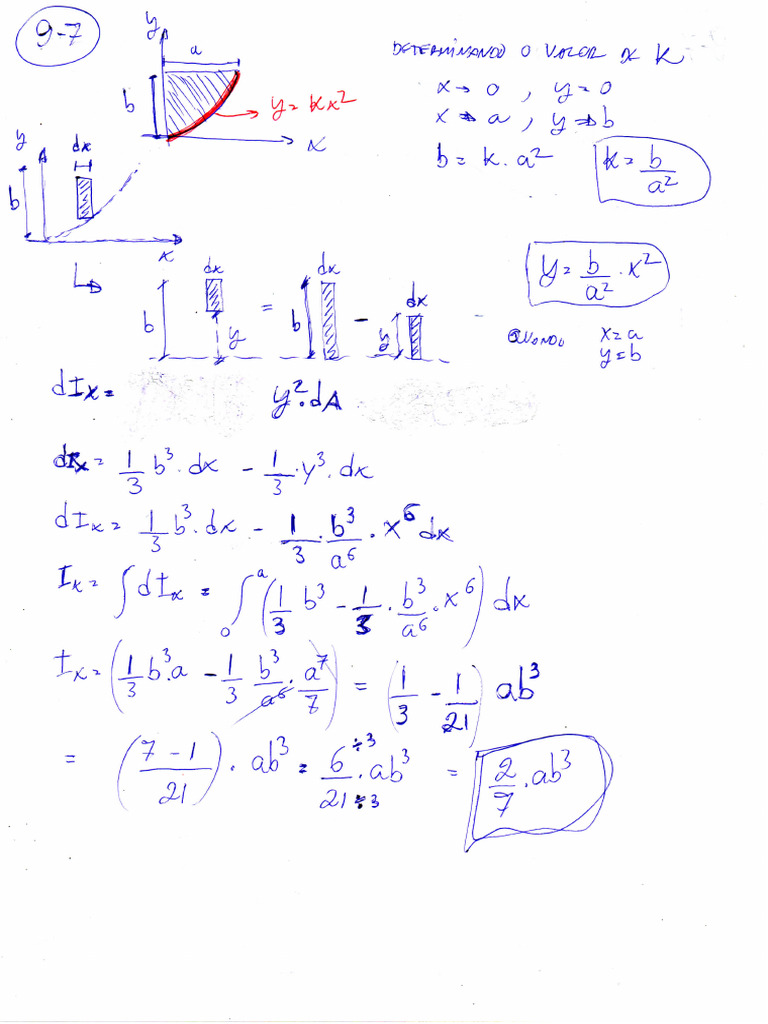 9-7
y
a
b
y = kx²
x
DETERMINANDO O VALOR DE K
x → 0 , y = 0
x → a , y → b
b = k . a²
k = b/a²
y
dx
b
x
y = b/a² . x²
QUANDO x = a
y = b
dx
b
y
=
dx
b
-
dx
y
dIx = y² . dA
dIx = 1/3 b³ . dx - 1/3 . y³ . dx
dIx = 1/3 b³ . dx - 1/3 . b³/a⁶ . x⁶ dx
Ix = ∫ dIx = ∫₀ᵃ (1/3 b³ - 1/3 . b³/a⁶ . x⁶) dx
Ix = (1/3 b³ . a - 1/3 b³/a⁶ . a⁷/7) = (1/3 - 1/21) ab³
= (7 - 1/21) . ab³ = 6÷3/21÷3 . ab³ = 2/7 . ab³